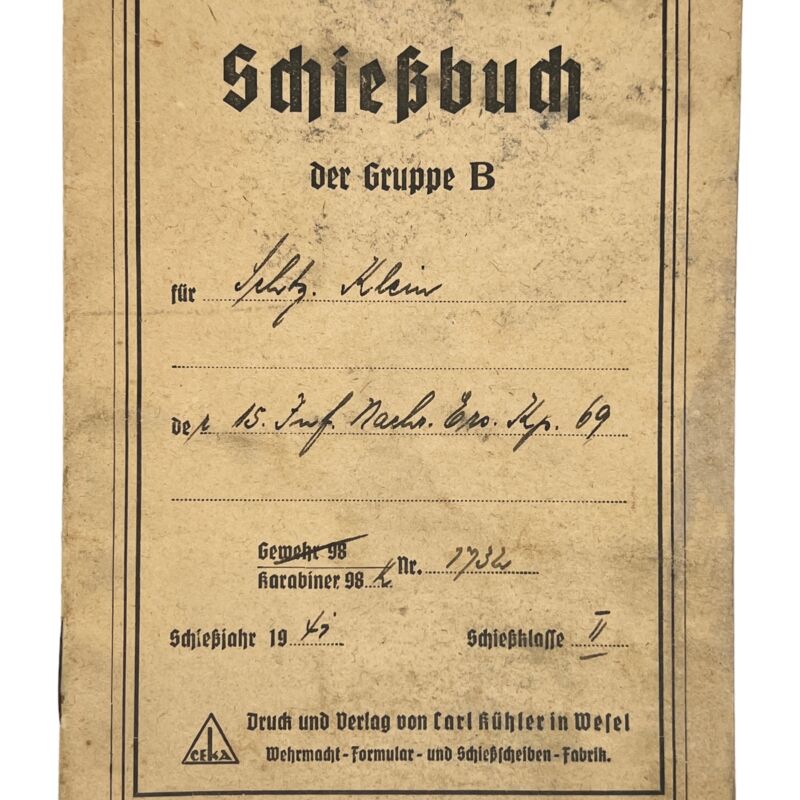 Schießbuch
der Gruppe B
für Schtz. Klein
der 15. Inf. Nachr. Ers. Kp. 69
Gewehr 98
Karabiner 98 k Nr. 1732
Schießjahr 19 41
Schießklasse II
Druck und Verlag von Carl Kühler in Wesel
CEKA
Wehrmacht-Formular- und Schießscheiben-Fabrik.